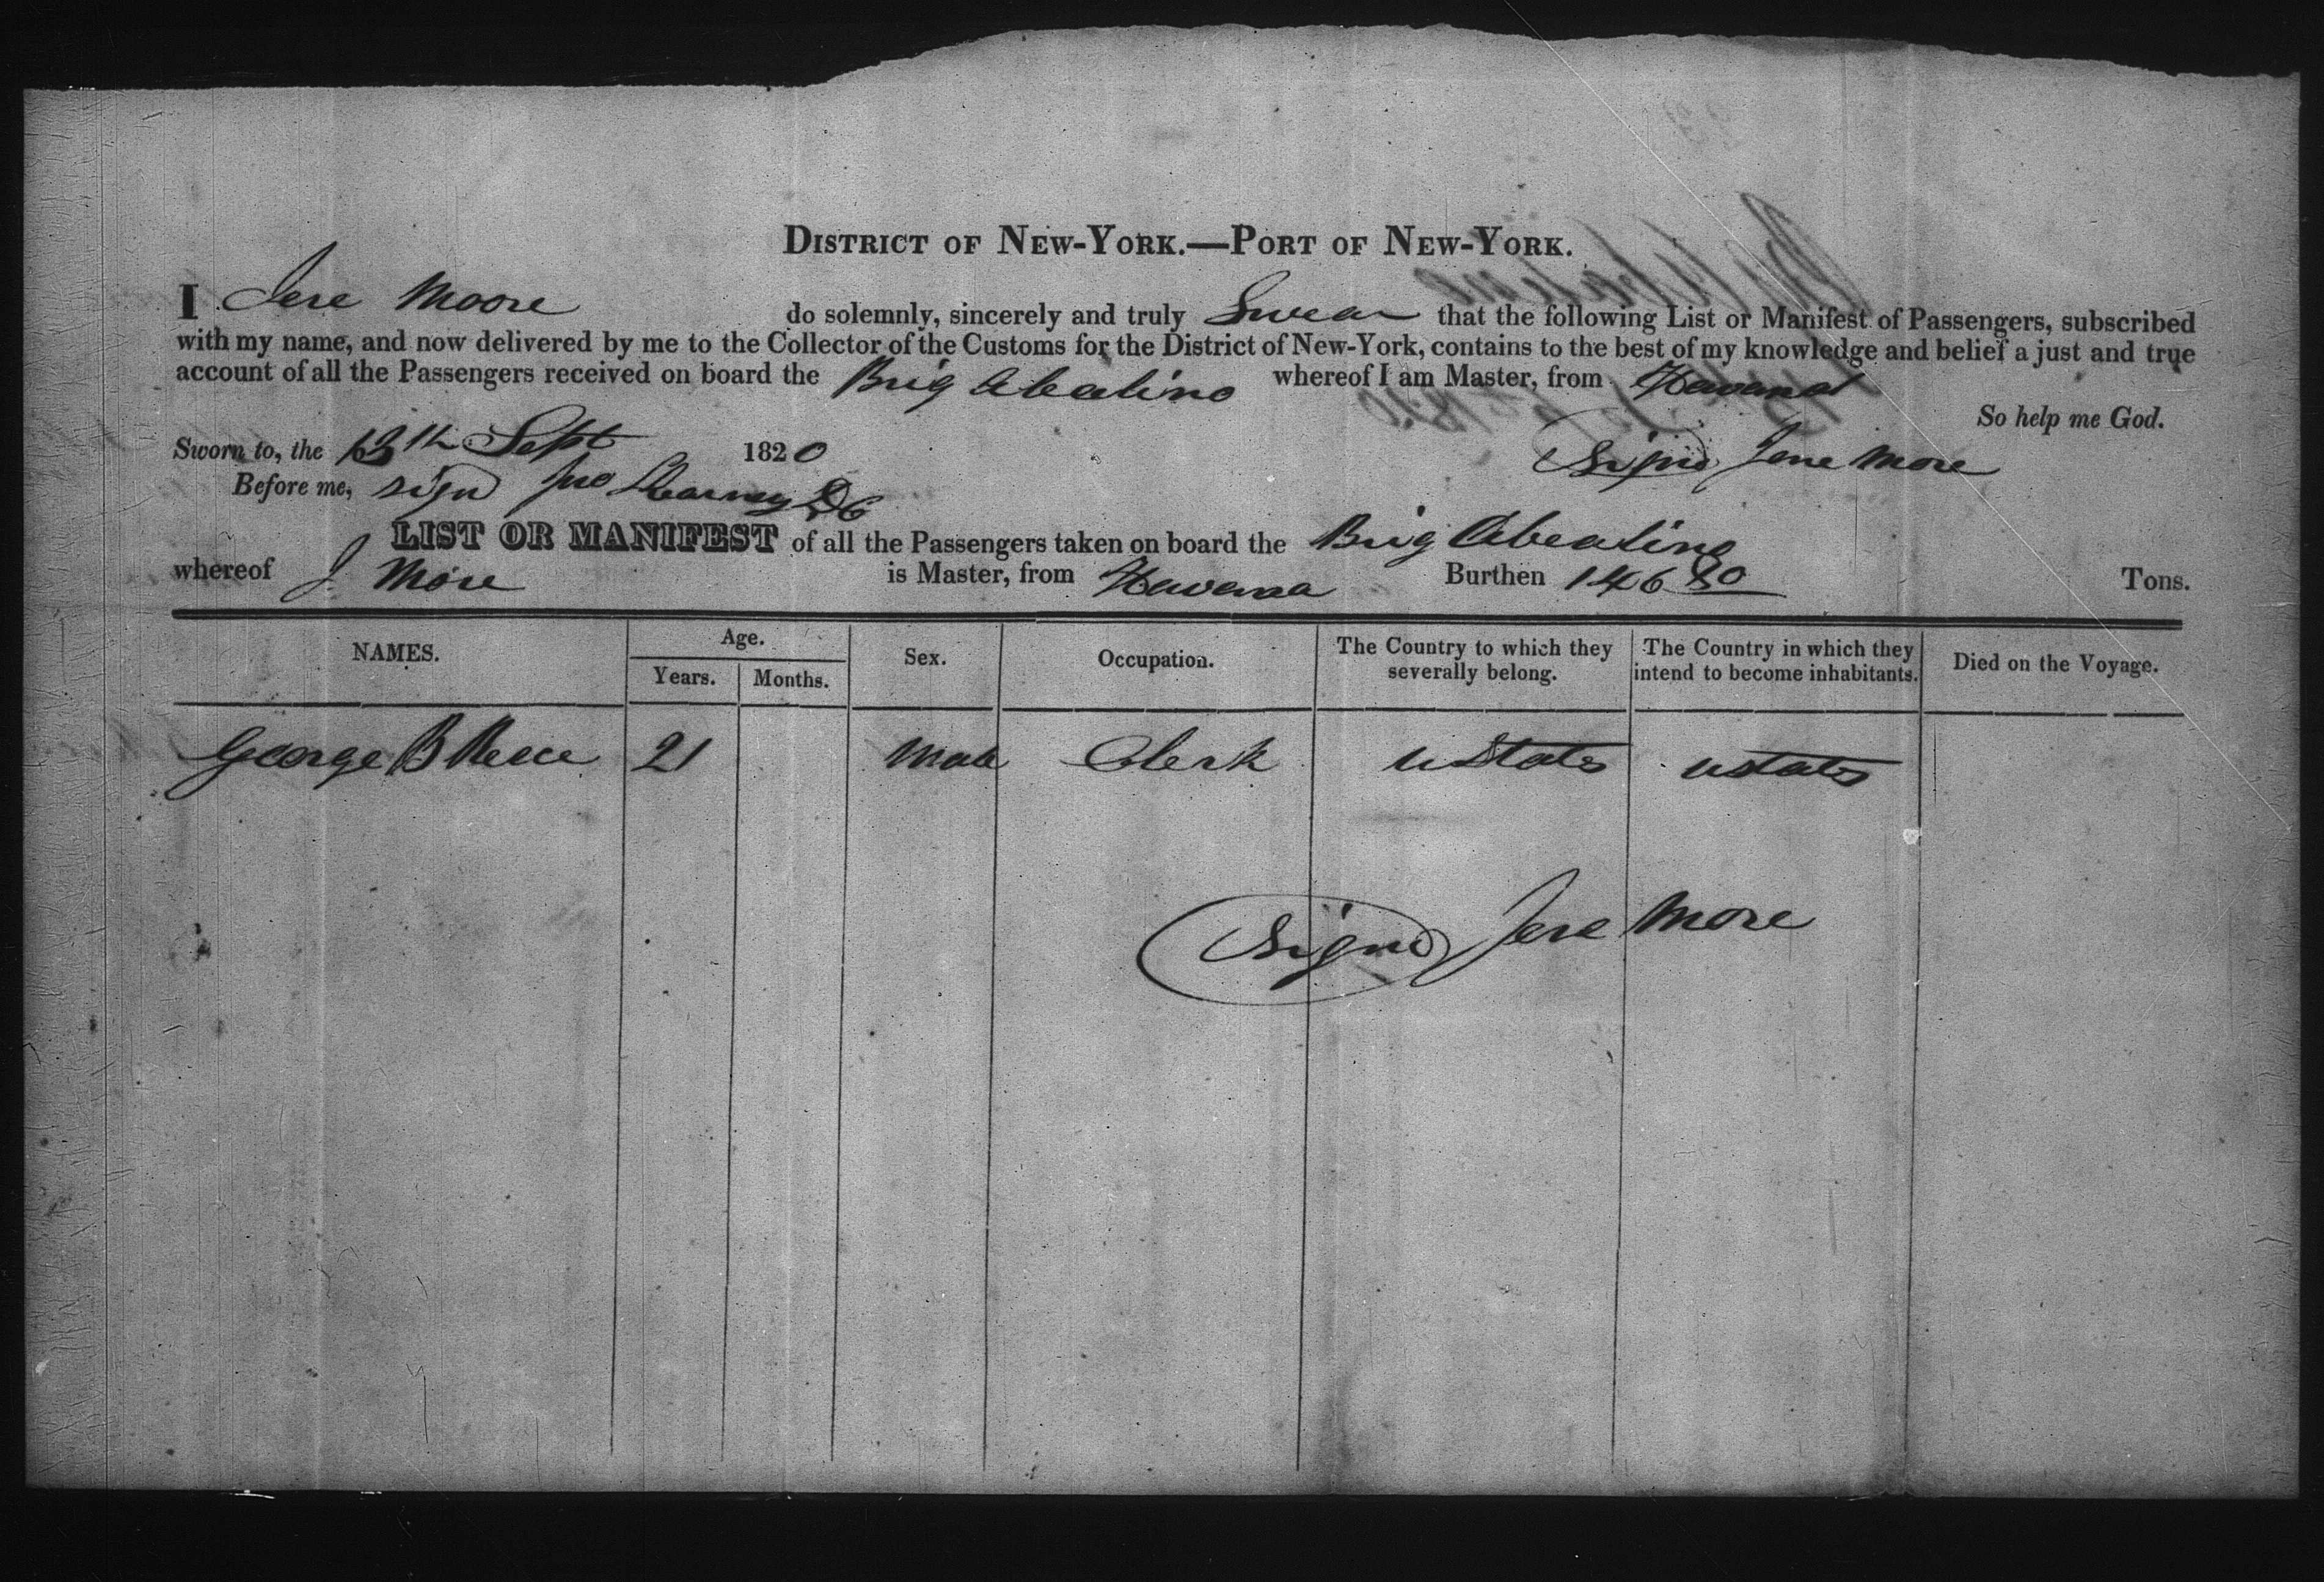 DISTRICT OF NEW-YORK.—PORT OF NEW-YORK.
I Jere Moore do solemnly, sincerely and truly Swear that the following List or Manifest of Passengers, subscribed
with my name, and now delivered by me to the Collector of the Customs for the District of New-York, contains to the best of my knowledge and belief a just and true
account of all the Passengers received on board the Brig Abealino whereof I am Master, from Havana
So help me God.
Sworn to, the 13th Sept 1820
Signd Jere More
Before me, sign Jno
LIST OR MANIFEST of all the Passengers taken on board the Brig Abealino
whereof J. More is Master, from Havana Burthen 146 80 Tons.
NAMES. Age. Sex. Occupation. The Country to which they severally belong. The Country in which they intend to become inhabitants. Died on the Voyage.
Years. Months.
George B Reece 21 Male Clerk UStates UStates
Signd Jere More